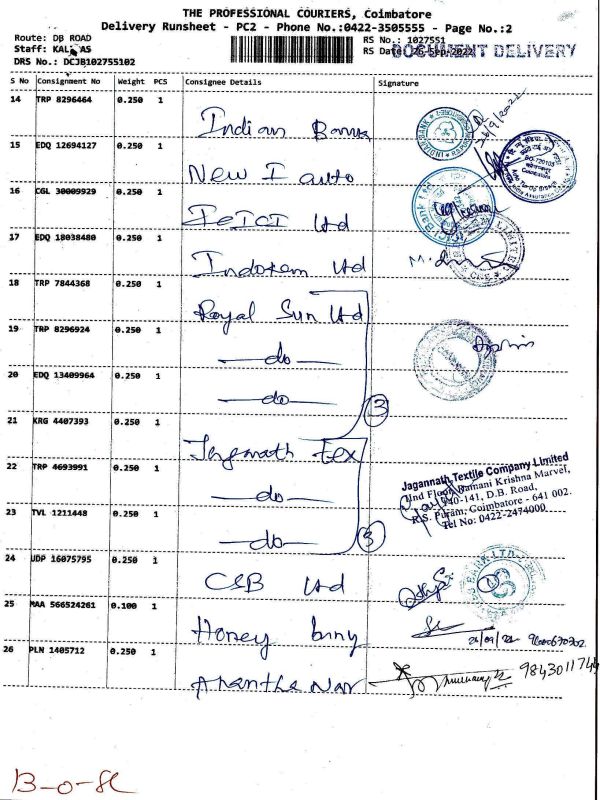 THE PROFESSIONAL COURIERS, Coimbatore
Delivery Runsheet - PC2 - Phone No.:0422-3505555 - Page No.:2
Route: DB ROAD
RS No.: 1027551
Staff: KAL AS
RS Date: 26-Sep-2022
DOCUMENT DELIVERY
DRS No.: DCJB102755102
S No Consignment No Weight PCS Consignee Details Signature
14 TRP 8296464 0.250 1
Indian Bank
26/9/2022
15 EDQ 12694127 0.250 1
New I auto
16 CGL 30009929 0.250 1
ICICI Ltd
17 EDQ 18038480 0.250 1
Indokem Ltd
18 TRP 7844368 0.250 1
Royal Sun Ltd
19 TRP 8296924 0.250 1
do
20 EDQ 13409964 0.250 1
do
3
21 KRG 4407393 0.250 1
Jagannath Tex
22 TRP 4693991 0.250 1
do
Jagannath Textile Company Limited
IInd Floor, Ramani Krishna Marvel,
D.B. Road,
R.S. Puram, Coimbatore - 641 002.
Tel No: 0422-2474000
23 TVL 1211448 0.250 1
do
3
24 UDP 16075795 0.250 1
CSB Ltd
25 MAA 566524261 0.100 1
Honey bnny
26/09/22 9600670302
26 PLN 1405712 0.250 1
Anantha Nar
9843011744
B-o-SL